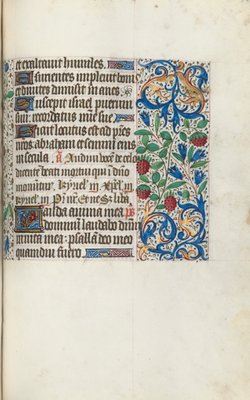 et exaltauit humiles.
Esurientes impleuit boni
et diuites dimisit inanes
Suscepit israel puerum
suū. recordatus mīe sue
Sicut locutus est ad pr̄es
nr̄os. abraham et semini eius
in secula. a̅ Audiui vocē de celo
dicentē beati mortui qui ī dn̄o
moriūtur. Kyriel. xpel.
Kyriel. Pr̄ nr̄. Et ne. Sꝫ liba.
Lauda anima mea ps
dominum laudabo dn̄ū
in uita mea: psallā deo meo
quamdiu fuero.